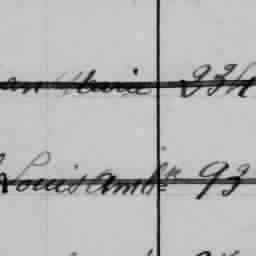 an Marie 234
Louis Amb.se 93